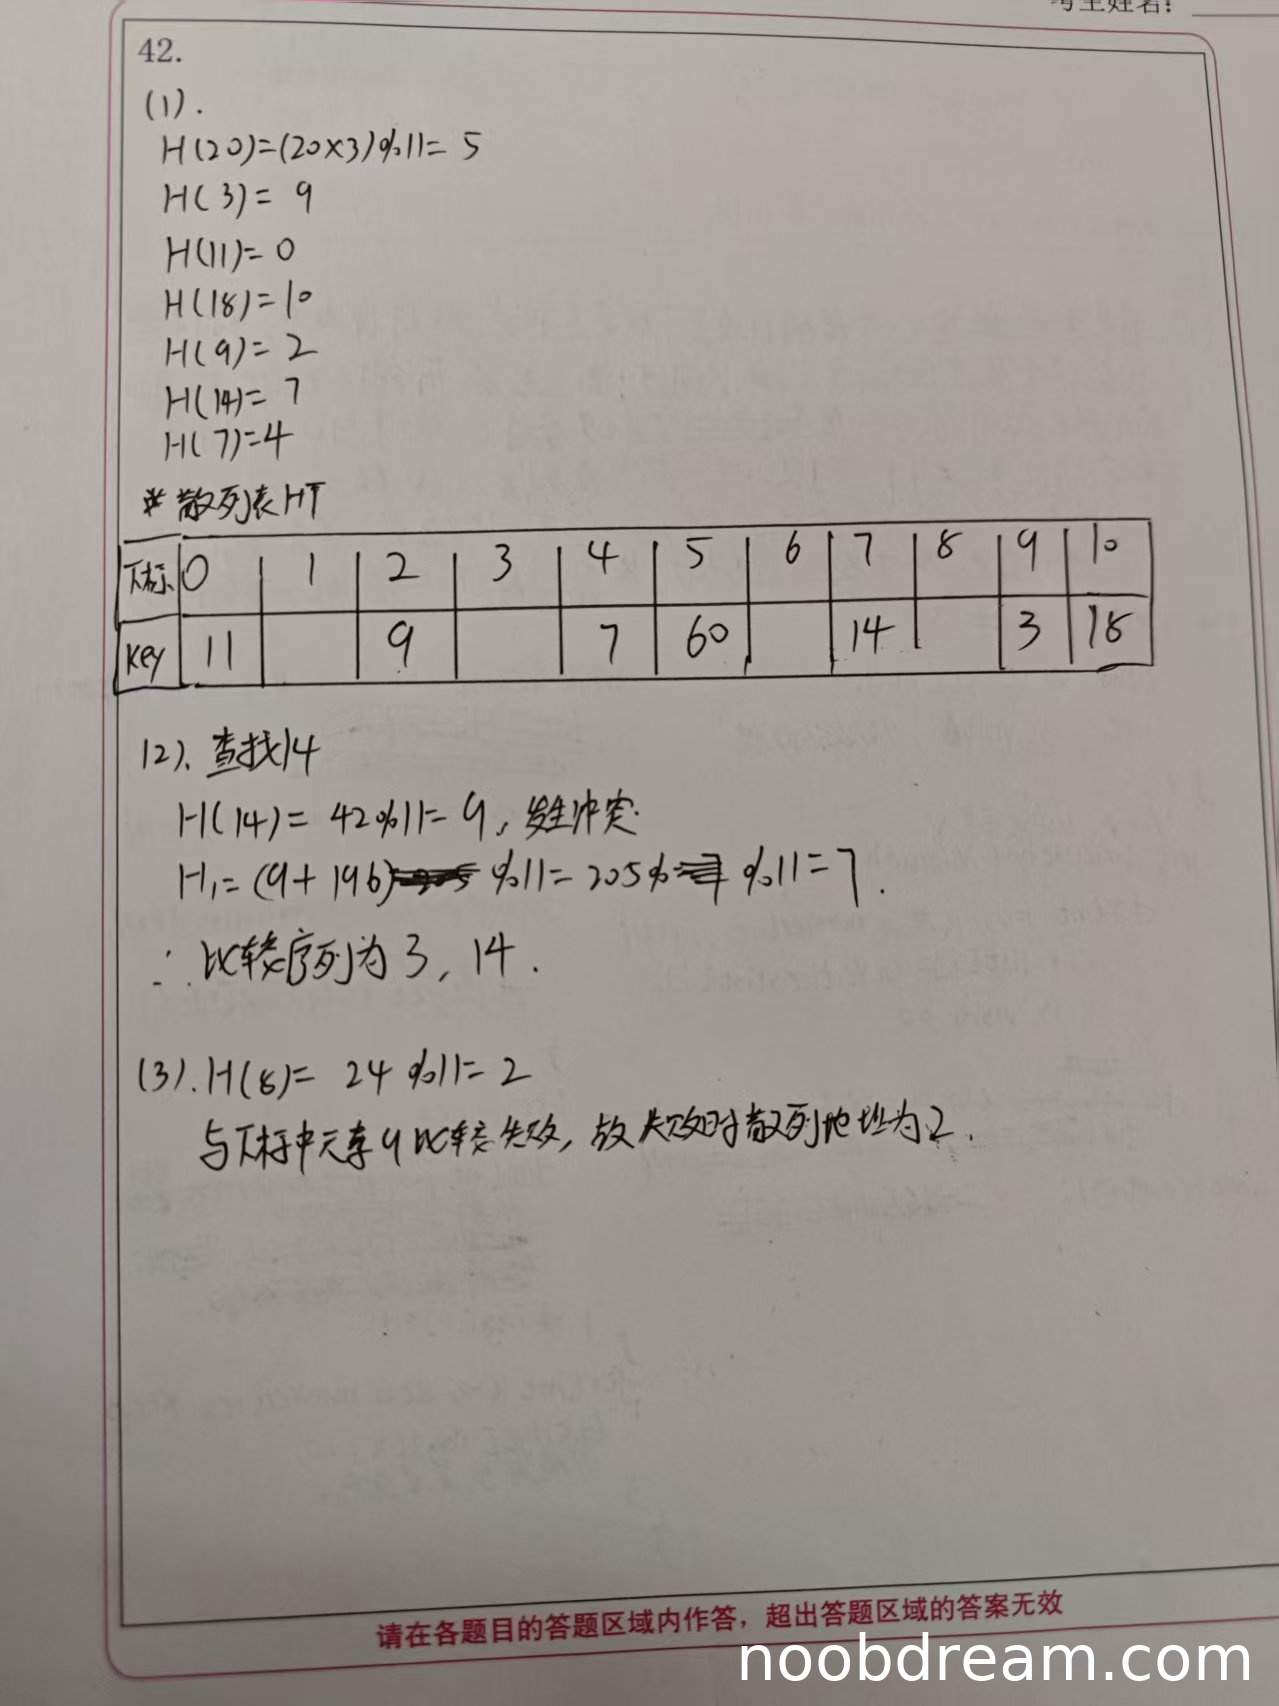 考生姓名:
42.
(1).
H(20)=(20×3)%11= 5
H( 3)= 9
H(11)= 0
H(18)=10
H(9)= 2
H(14)= 7
H( 7)=4
散列表HT
下标 0 1 2 3 4 5 6 7 8 9 10
Key 11 9 7 60 14 3 18
(2). 查找14
H(14)= 42%11= 9, 发生冲突.
H₁= (9+196) %11= 205% %11=7.
∴ 比较序列为 3, 14.
(3). H(8)= 24 %11= 2
与下标中元素9比较失败, 故失败时散列地址为2.
请在各题目的答题区域内作答，超出答题区域的答案无效
noobdream.com